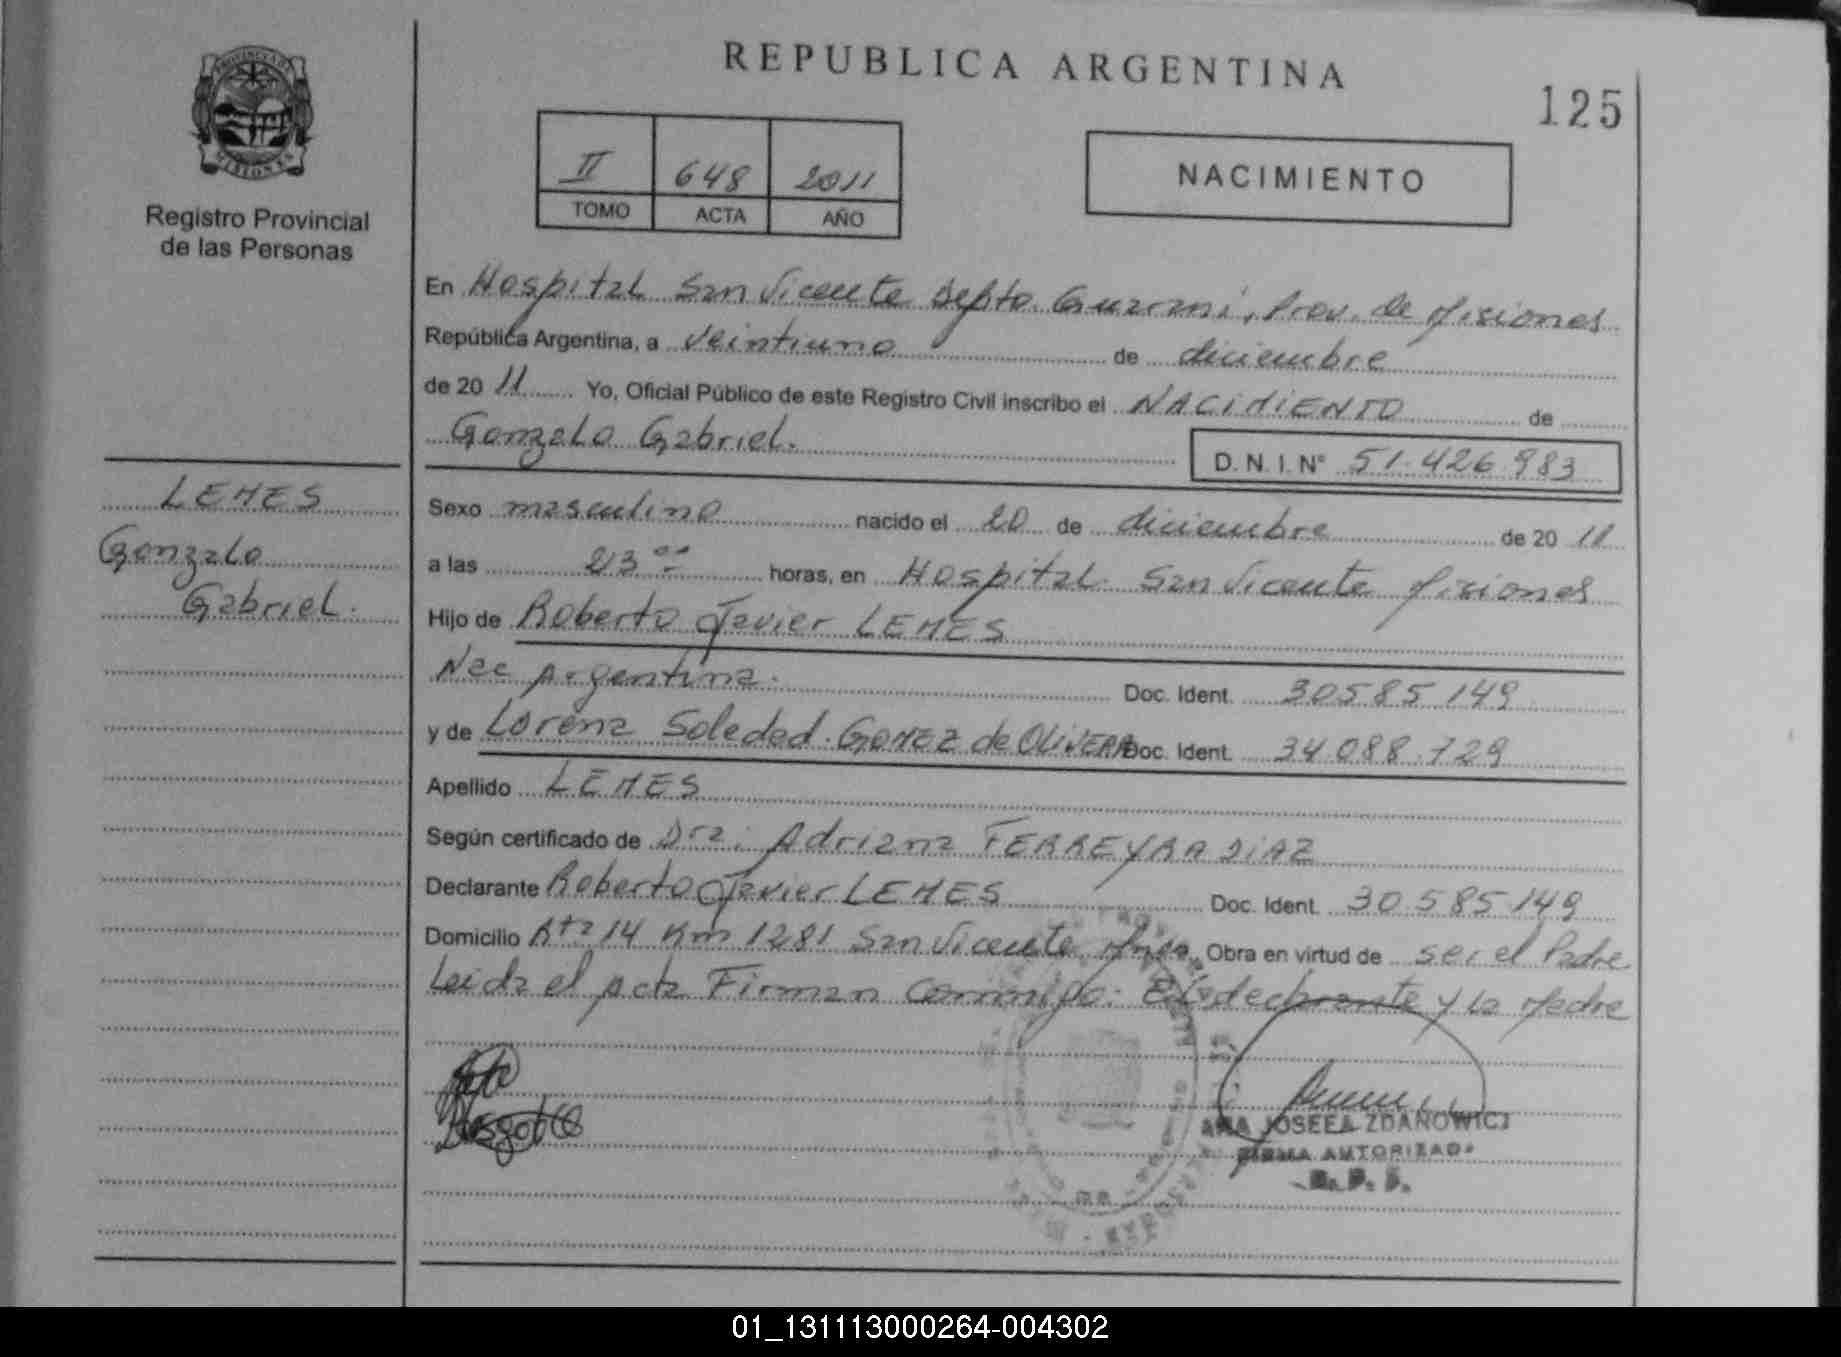 REPUBLICA ARGENTINA
125
PROVINCIA DE
MISIONES
Registro Provincial
de las Personas
II 648 2011
TOMO ACTA AÑO
NACIMIENTO
En Hospital San Vicente Depto. Guaraní, Prov. de Misiones
República Argentina, a veintiuno de diciembre
de 20 11 Yo, Oficial Público de este Registro Civil inscribo el NACIMIENTO de
Gonzalo Gabriel. D. N. I. N° 51.426.983
LEMES
Gonzalo
Gabriel.
Sexo masculino nacido el 20 de diciembre de 20 11
a las 23 ºº horas, en Hospital San Vicente Misiones
Hijo de Roberto Javier LEMES
Nac Argentina. Doc. Ident. 30585149
y de Lorena Soledad GOMEZ de OLIVERA Doc. Ident. 34.088.729
Apellido LEMES
Según certificado de Dra. Adriana FERREYRA DIAZ
Declarante Roberto Javier LEMES Doc. Ident. 30.585.149
Domicilio Rta 14 Km 1281 San Vicente Obra en virtud de ser el Padre
Leida el Acta Firman Conmigo. El declarante y la Madre
ANA JOSEFA ZDANOWICZ
FIRMA AUTORIZADA
R. P. P.
01_131113000264-004302